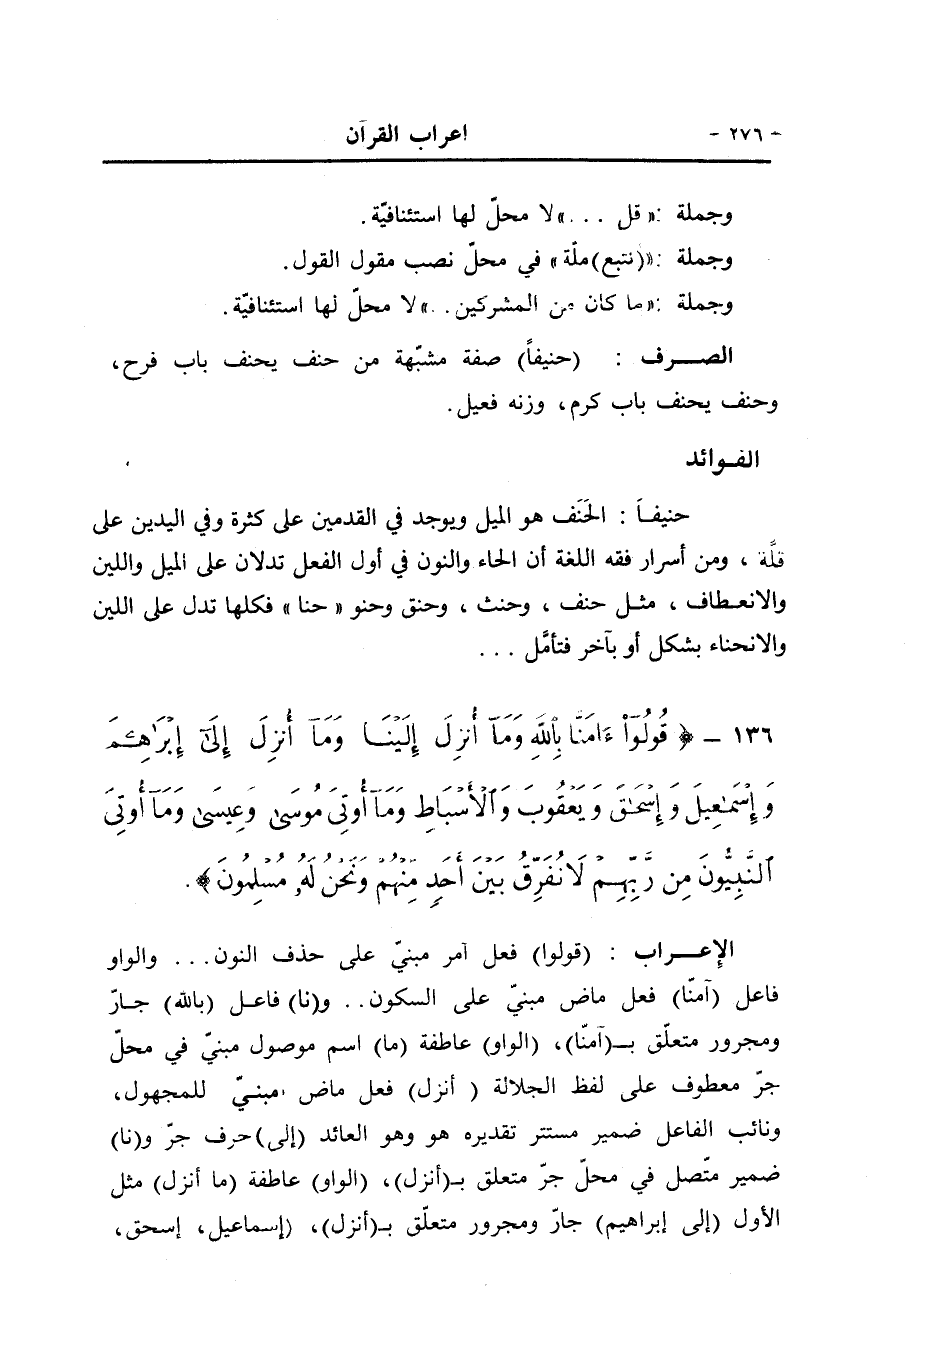 - ٢٧٦ - اعراب القرآن
وجملة :« قل . . .» لا محلّ لها استئنافيّة .
وجملة :«(نتبع) ملّة » في محلّ نصب مقول القول.
وجملة :« ما كان من المشركين. . .» لا محلّ لها استئنافيّة .
الصـــرف : (حنيفاً) صفة مشبّهة من حنف يحنف باب فرح،
وحنف يحنف باب كرم، وزنه فعيل.
الفـوائد
حنيفـاً : الحَنَف هو الميل ويوجد في القدمين على كثرة وفي اليدين على
قلَّة ، ومن أسرار فقه اللغة أن الحاء والنون في أول الفعل تدلان على الميل واللين
والانعـطاف ، مثـل حنف ، وحنث ، وحنق وحنو « حنا » فكلها تدل على اللين
والانحناء بشكل أو بآخر فتأمَّل . . .
١٣٦ - ﴿ قُولُوٓا۟ ءَامَنَّا بِٱللَّهِ وَمَآ أُنزِلَ إِلَيْنَا وَمَآ أُنزِلَ إِلَىٰٓ إِبْرَٰهِـۧمَ
وَإِسْمَـٰعِيلَ وَإِسْحَـٰقَ وَيَعْقُوبَ وَٱلْأَسْبَاطِ وَمَآ أُوتِىَ مُوسَىٰ وَعِيسَىٰ وَمَآ أُوتِىَ
ٱلنَّبِيُّونَ مِن رَّبِّهِمْ لَا نُفَرِّقُ بَيْنَ أَحَدٍ مِّنْهُمْ وَنَحْنُ لَهُۥ مُسْلِمُونَ ﴾.
الإعـــراب : (قولوا) فعل أمر مبنيّ على حذف النون. . . والواو
فاعل (آمنّا) فعل ماض مبنيّ على السكون. . و(نا) فاعـل (بالله) جـارّ
ومجرور متعلّق بـ(آمنّا)، (الواو) عاطفة (ما) اسم موصول مبنيّ في محلّ
جرّ معطوف على لفظ الجلالة ( أنزل) فعل ماض مبنـيّ للمجهول،
ونائب الفاعل ضمير مستتر تقديره هو وهو العائد (إلى) حرف جرّ و(نا)
ضمير متّصل في محلّ جرّ متعلق بـ(أنزل)، (الواو) عاطفة (ما أنزل) مثل
الأول (إلى إبراهيم) جارّ ومجرور متعلّق بـ(أنزل)، (إسماعيل، إسحق،